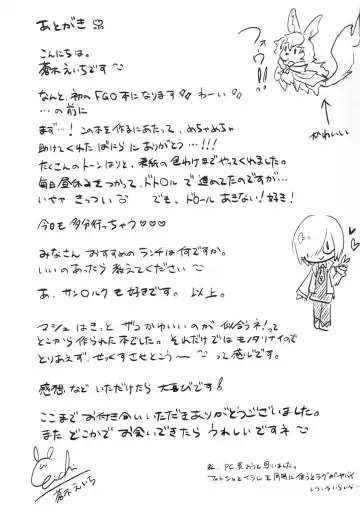 あとがき
フォウ!!
かわいい
こんにちは。
蒼木えいちです
なんと、初のFGO本になります わーい
…の前に
まず…！この本を作るにあたって、めちゃめちゃ
助けてくれたばにらにありがとう…!!!
たくさんのトーンはりと、表紙の色わけまでやってくれました。
毎日昼休みをつかって、ドトールで進めてたのですが…
いやぁ きっつい でも、ドトールあきない！好き！
今日も多分行っちゃう♡♡♡
みなさん おすすめのランチは何ですか。
いいのあったら教えてください
あ、サンマルクも好きです。以上。
マシュはきっと ザコかわいいのが似合うネ！って
どこから作られた本でした。それだけではモッタイナイので
とりあえず、せっくすさせとこう〜 って感じです。
感想などいただけたら大喜びです！
ここまでお付き合いいただきありがとうございました。
またどこかでお会いできたらうれしいですネ
Eichi
蒼木えいち
P.C買おうと思いました。